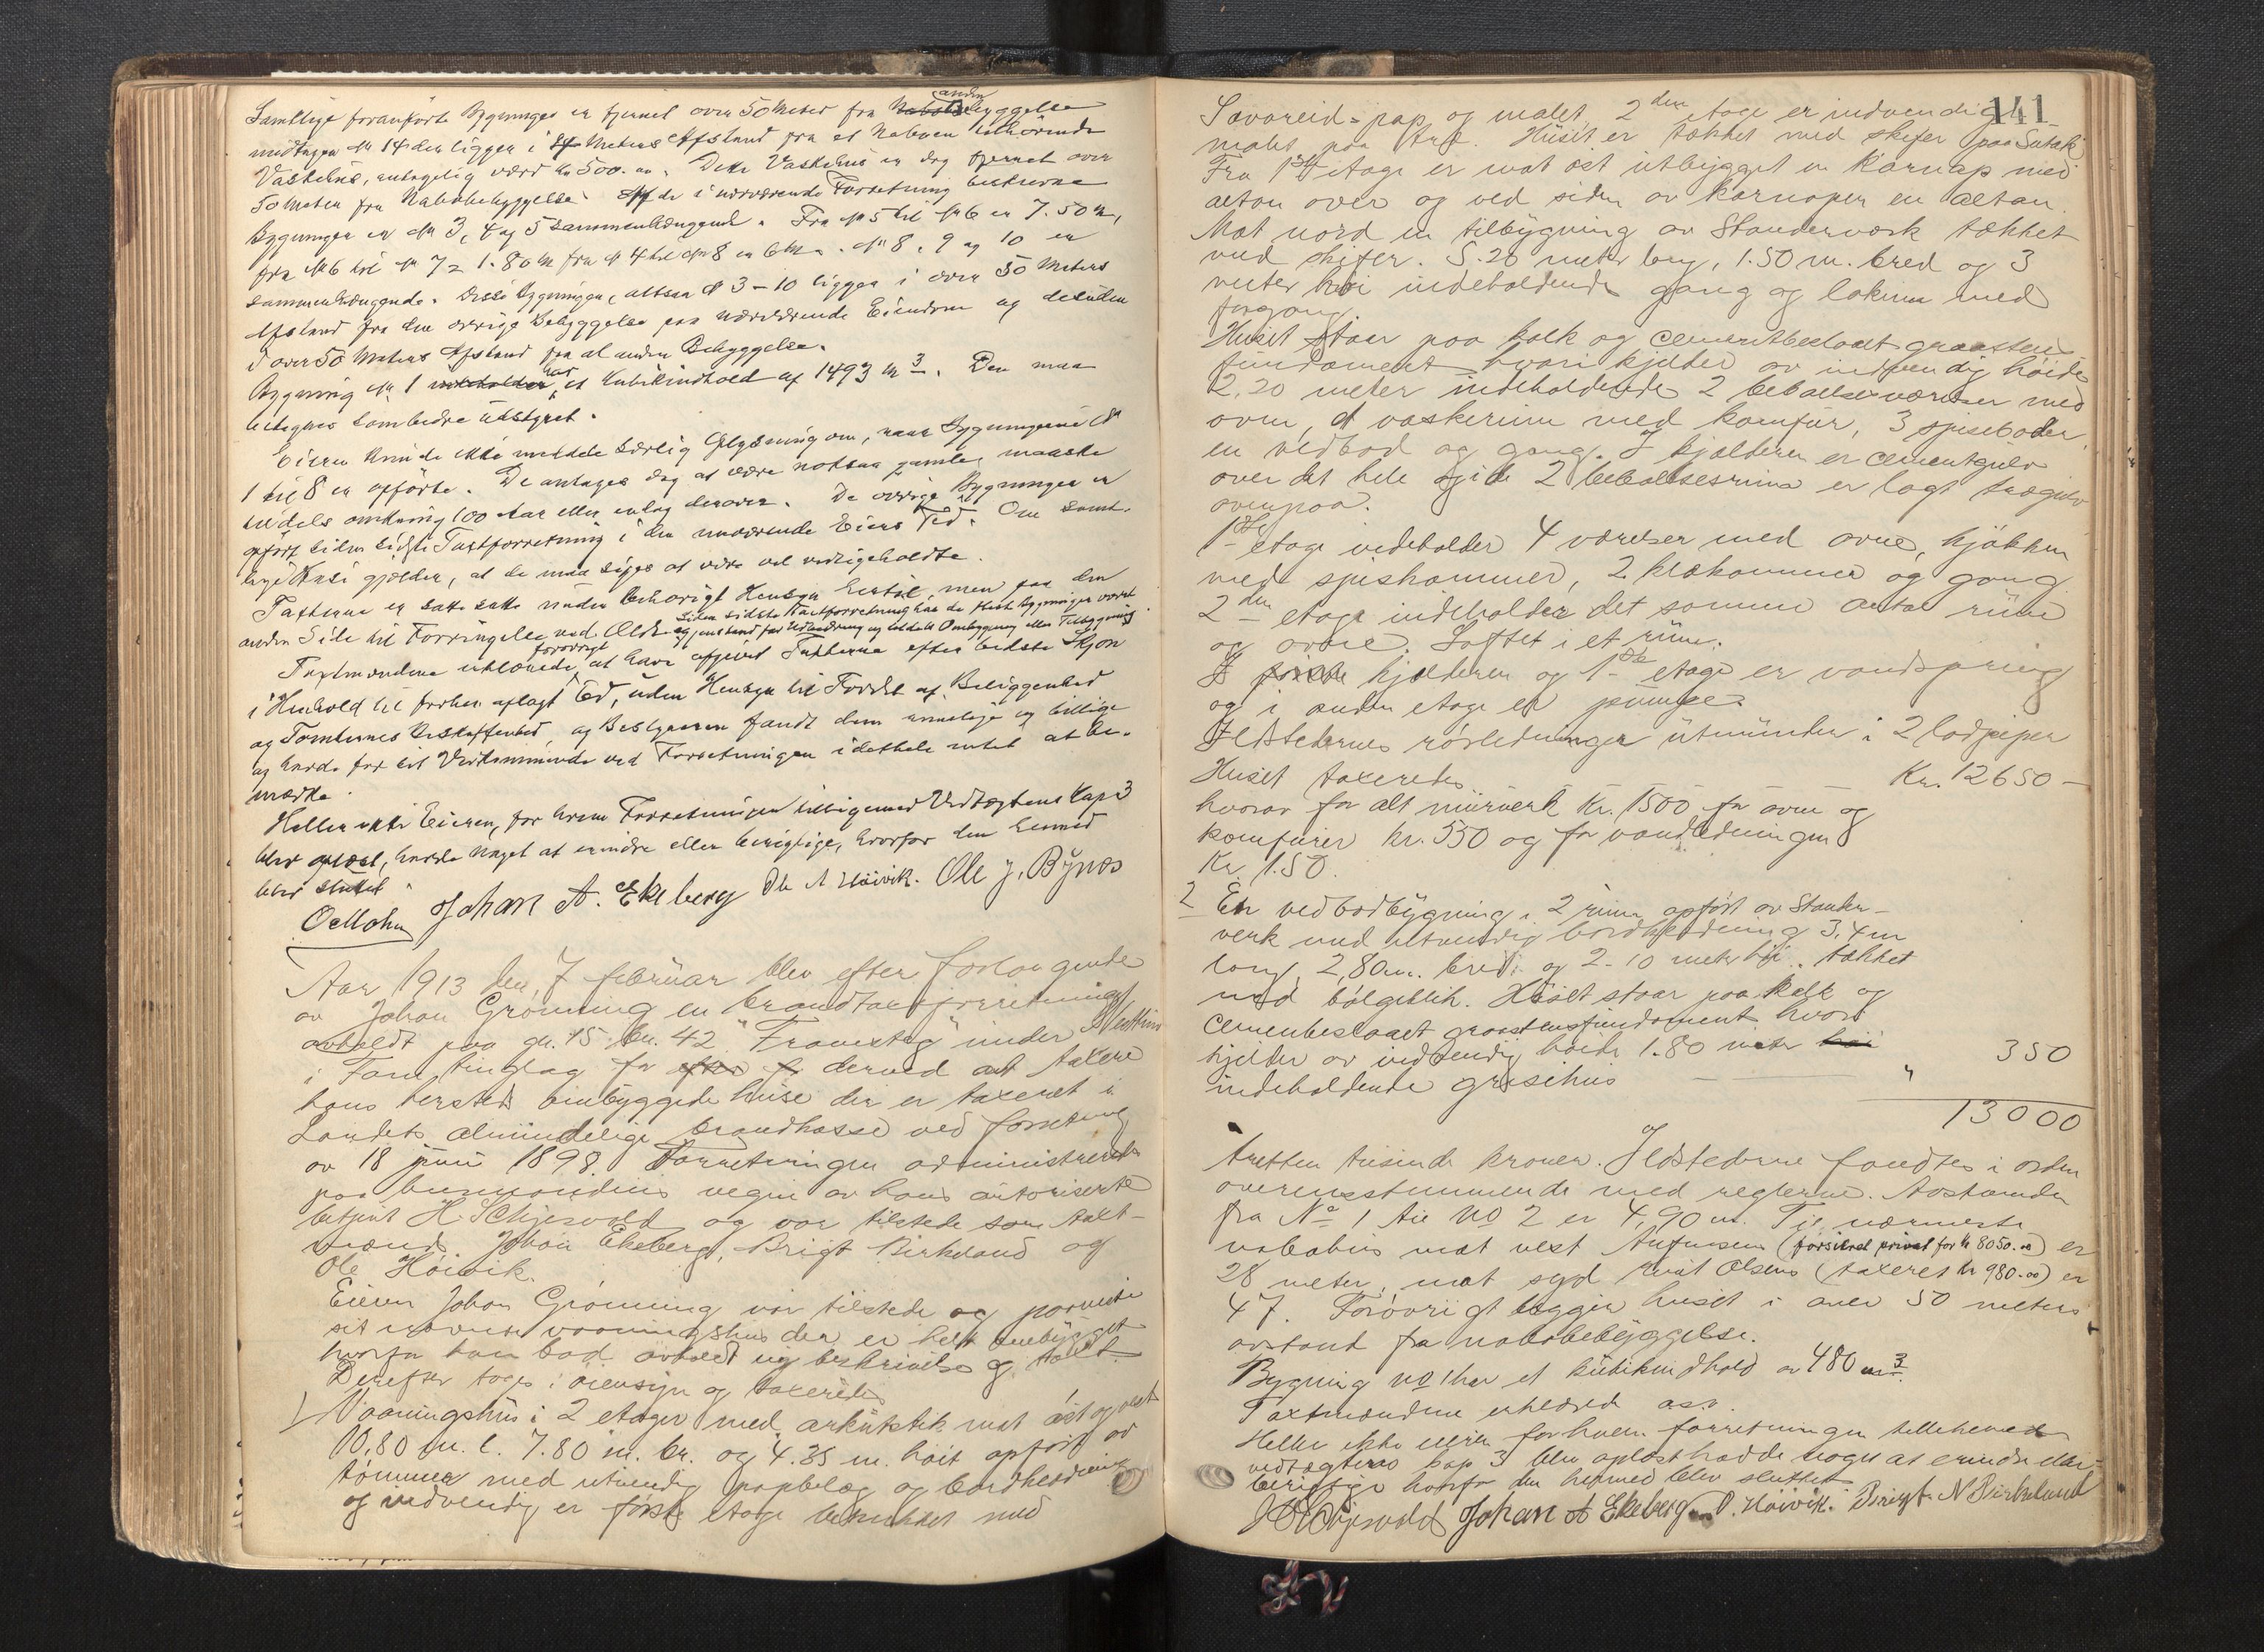 Samtlige foranførte Bygninger er fjernet over 50 Meter fra anden Bebyggelse
undtagen № 14 der ligger i Meters Afstand fra et Naboen tilhørende
Vaskehus, antagelig værd kr 500.00. Dette Vaskehus er dog fjernet over
50 Meter fra Nabobebyggelse. Af de i nærværende Forretning beskrevne
Bygninger er № 3, 4 og 5 sammenhængende. Fra № 5 til № 6 er 7.50 m,
fra № 6 til № 7 = 1.80 m fra № 4 til № 8 er 6 m. № 8, 9 og 10 er
sammenhængende. Disse Bygninger, altsaa № 3-10 ligger i over 50 Meters
Afstand fra den øvrige Bebyggelse paa nærværende Eiendom og desuden
i over 50 Meters Afstand fra al anden Bebyggelse.
Bygning № 1 har et Kubikindhold af 1493 m3. Den maa
betegnes som bedre udstyret.
Eieren kunde ikke meddele særlig Oplysning om, naar Bygningerne №
1 til 8 er opførte. De antages dog at være notsaa gamle, maaske
tildels omkring 100 Aar eller endog derover. De øvrige Bygninger er
opført siden sidste Taxtforretning i den nuværende Eiers Tid. Om samt-
lige Huse gjælder, at de maa siges at være vel vedligeholdte.
Taxterne er satte under behørigt Hensyn hertil, men paa den
anden Side til Forringelse ved Ælde. Siden sidste Taxtforretning har de fleste Bygninger været
gjenstand for Udbedring og tildels Ombygning eller Tilbygning
Taxtmændene erklærede forøvrigt at have afgivet Taxterne efter bedste Skjøn
i Henhold til forhen aflagt Ed, uden Hensyn til Fordel af Beliggenhed
og Tomternes Beskaffenhed, og Bestyreren fandt dem rimelige og billige
og havde for sit Vedkommende ved Forretningen idethele intet at be-
mærke.
Heller ikke Eieren, for hvem Forretningen tilligemed Vedtægtens Kap 3
blev oplæst, havde noget at erindre eller berigtige, hvorfor den hermed
blev sluttet.
Johan A. Ekeberg Ole A Höivik. Ole J. Bynes
Aar 1913 den 7 februar blev efter forlangende
av Johan Grønning en brandtaxtforretning
avholdt paa gn. 15 br. 42 "Framsteg" under
i Fane tinglag for derved at taxere
hans hersteds ombyggede huse der er taxeret i
Landets almindelige brandkasse ved forretning
av 18 juni 1898. Forretningen administreredes
paa lensmandens vegne av hans autoriserte
betjent H. Schjesvold og var tilstede som taxt-
mænd Johan Ekeberg, Brigt Birkeland og
Ole Höivik.
Eieren Johan Grønning var tilstede og paaviste
sit vaaningshus der er helt ombygget
hvorfor han bad avholdt ny beskrivelse og taxt.
Derefter toges i øiensyn og taxeredes
1/ Vaaningshus i 2 etager med ark mot øst og vest
10,80 m. l. 7.80 m. br. og 4.35 m. høit opført av
tømmer med utvendig papbelæg og bordklædning
og indvendig er første etage beklædt med
141
Savareid-pap og malet. 2den etage er indvendig
malet paa træ. Huset er tækket med skifer paa Sutak
Fra 1ste etage er mot øst utbygget en karnap med
altan over og ved siden av karnapen en altan.
Mot nord en tilbygning av Standerværk tækket
med skifer. 5.20 meter lang, 1.50 m. bred og 3
meter høi indeholdende gang og lokum med
forgang.
Huset staar paa kalk og cementbeslaaet graastens
fundament hvori kjelder av indvendig høide
2.20 meter indeholdende 2 beboelsesværelser med
ovne, et vaskerum med komfur, 3 spiseboder
en vedbod og gang. I kjælderen er cementgulv
over det hele og i de 2 beboelsesrum er lagt trægulv
ovenpaa.
1ste etage indeholder 4 værelser med ovne, kjøkken
med spiskammer, 2 klækammer og gang
2den etage indeholder det samme antal rum
og ovne. Loftet i et rum.
I kjælderen og 1ste etage er vandspring
og i anden etage er pumpe.
Ildstedernes rørledninger utmunder i 2 lodpiper
Huset taxeredes Kr. 12650 -
hvorav for alt murverk Kr. 1500 for ovne og
komfurer Kr. 550 og for vandledningen
Kr. 150.
2 En vedbodbygning i 2 rum opført av Stander-
verk med utvendig bordklædning 3,4 m
lang, 2,80 m. bred og 2-10 meter høi. tækket
med bølgeblik. Huset staar paa kalk og
cementbeslaaet graastensfundament hvori
kjelder av indvendig høide 1.80 meter
indeholdende grisehus " 350
13000
tretten tusinde kroner. Ildstederne fandtes i orden
overensstemmende med reglerne. Avstanden
fra No 1 til No 2 er 4,90 m. Til nærmeste
nabohus mot vest (forsikret privat for kr 8050.00) er
28 meter, mot syd Olsens (taxeret kr 980.00) er
47. Forøvrigt ligger huset i over 50 meters
avstand fra nabobebyggelse.
Bygning No 1 har et kubikindhold av 480 m3.
Taxtmændene erklærede o.s.v.
Heller ikke eieren for hvem forretningen tillikemed
vedtægtens kap 3 blev oplæst hadde noget at erindre eller
berigtige hvorfor den hermed blev sluttet
H Schjesvold Johan A Ekeberg O. Höivik. Brigt N Birkeland